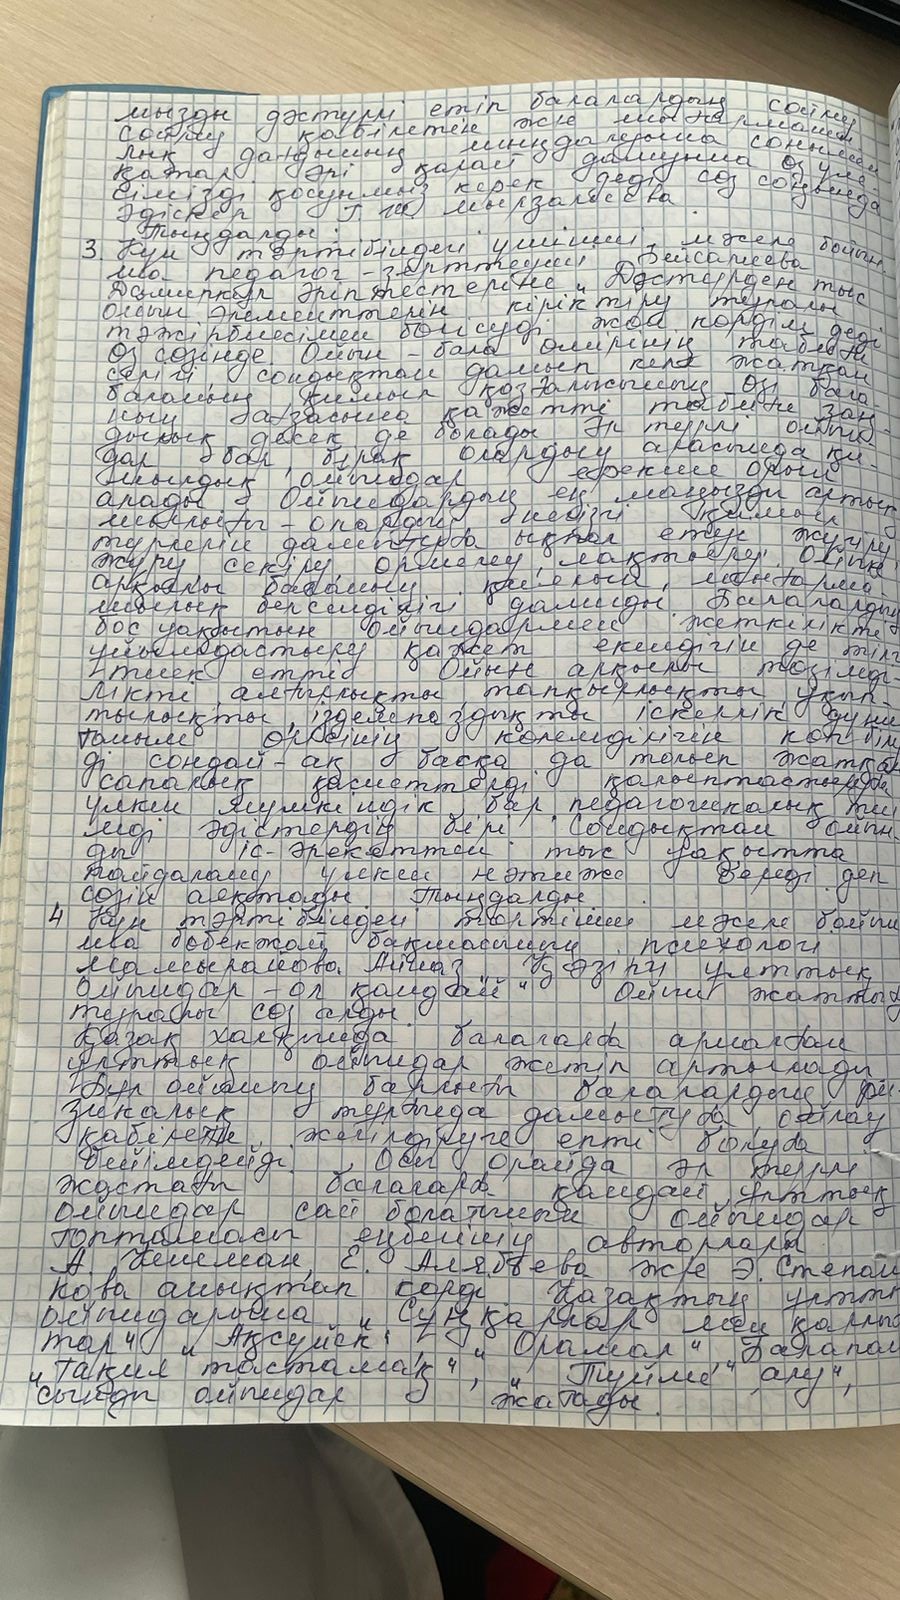 мызды дәстүрлі етіп балалардың сөйлеу
сөйлеу қабілетін және шығармашы-
лық дағдының шыңдалуына сонымен
қатар әрі қарай дамуына өз үле-
сімізді қосуымыз керек деді сөз соңында
әдіскер Г. Мырзалбаева
Тыңдалды:
3. Күн тәртібіндегі үшінші мәселе бойын-
ша педагог-зерттеуші Бейсалиева
әріптестеріне „Дәстүрден тыс
ойын элементтерін кіріктіру туралы
тәжірибесімен бөлісуді жөн көрдім деді
өз сөзінде. Ойын-бала өмірінің табиғи
серігі, сондықтан дамып келе жатқан
баланың қимыл қозғалысының өзі бала-
ның ағзасына қажетті табиғи заң-
дылық десек де болады Әр түрлі ойын-
дар бар, бірақ олардың арасында қи-
мылдық ойындар ерекше орын
алады Ойындардың ең маңызды артық-
шылығы-олардың негізгі қимыл
түрлерін дамытуға ықпал етуі жүгіру
жүру секіру өрмелеу, лақтыру. Ойын
арқылы баланың қиялын, шығарма-
шылық белсенділігі дамиды. Балалардың
бос уақытын ойындармен жеткілікті
ұйымдастыру қажет екендігін де тілге
тиек етті. Ойын арқылы төзімді-
лікті, алғырлықты, тапқырлықты ұқып-
тылықты, ізденпаздықты іскерлік дүние
таным өрісінің көлемділігін көп біл
ді сондай-ақ басқа да толып жатқан
сапалық қасиеттерді қалыптастыруға
үлкен мүмкіндік бар, педагогикалық тиі
мді әдістердің бірі. Сондықтан ойын-
ды іс-әрекеттен тыс уақытта
пайдалану үлкен нәтиже береді деп
сөзін аяқтады. Тыңдалды.
4 Күн тәртібіндегі төртінші мәселе бойын
ша бөбекжай бақшасының психологі
Қазіргі ұлттық
ойындар-ол қандай" ойын жаттығу
туралы сөз алды.
Қазақ халқында балаларға арналған
ұлттық ойындар жетіп артылады
Бұл ойынның барлығы балалардың фи-
зикалық тұрғыда дамытуға ойлау
қабілетін жетілдіруге епті болуға
бейімдейді. Осы орайда әр түрлі
жастағы балаларға қандай ұлттық
ойындар сай болатынын ойындар
топтамасы еңбегінің авторлары
А. Кенеман, Е. Алябьева және Э. Степан
кова анықтап көрді Қазақтың ұлттық
ойындарына „Сұңқарлар мен қарлы
тар" „Ақсүйек" „Орамал" „Балапан
„Тақия тастамақ", „Түйме алу",
сынды ойындар жатады.